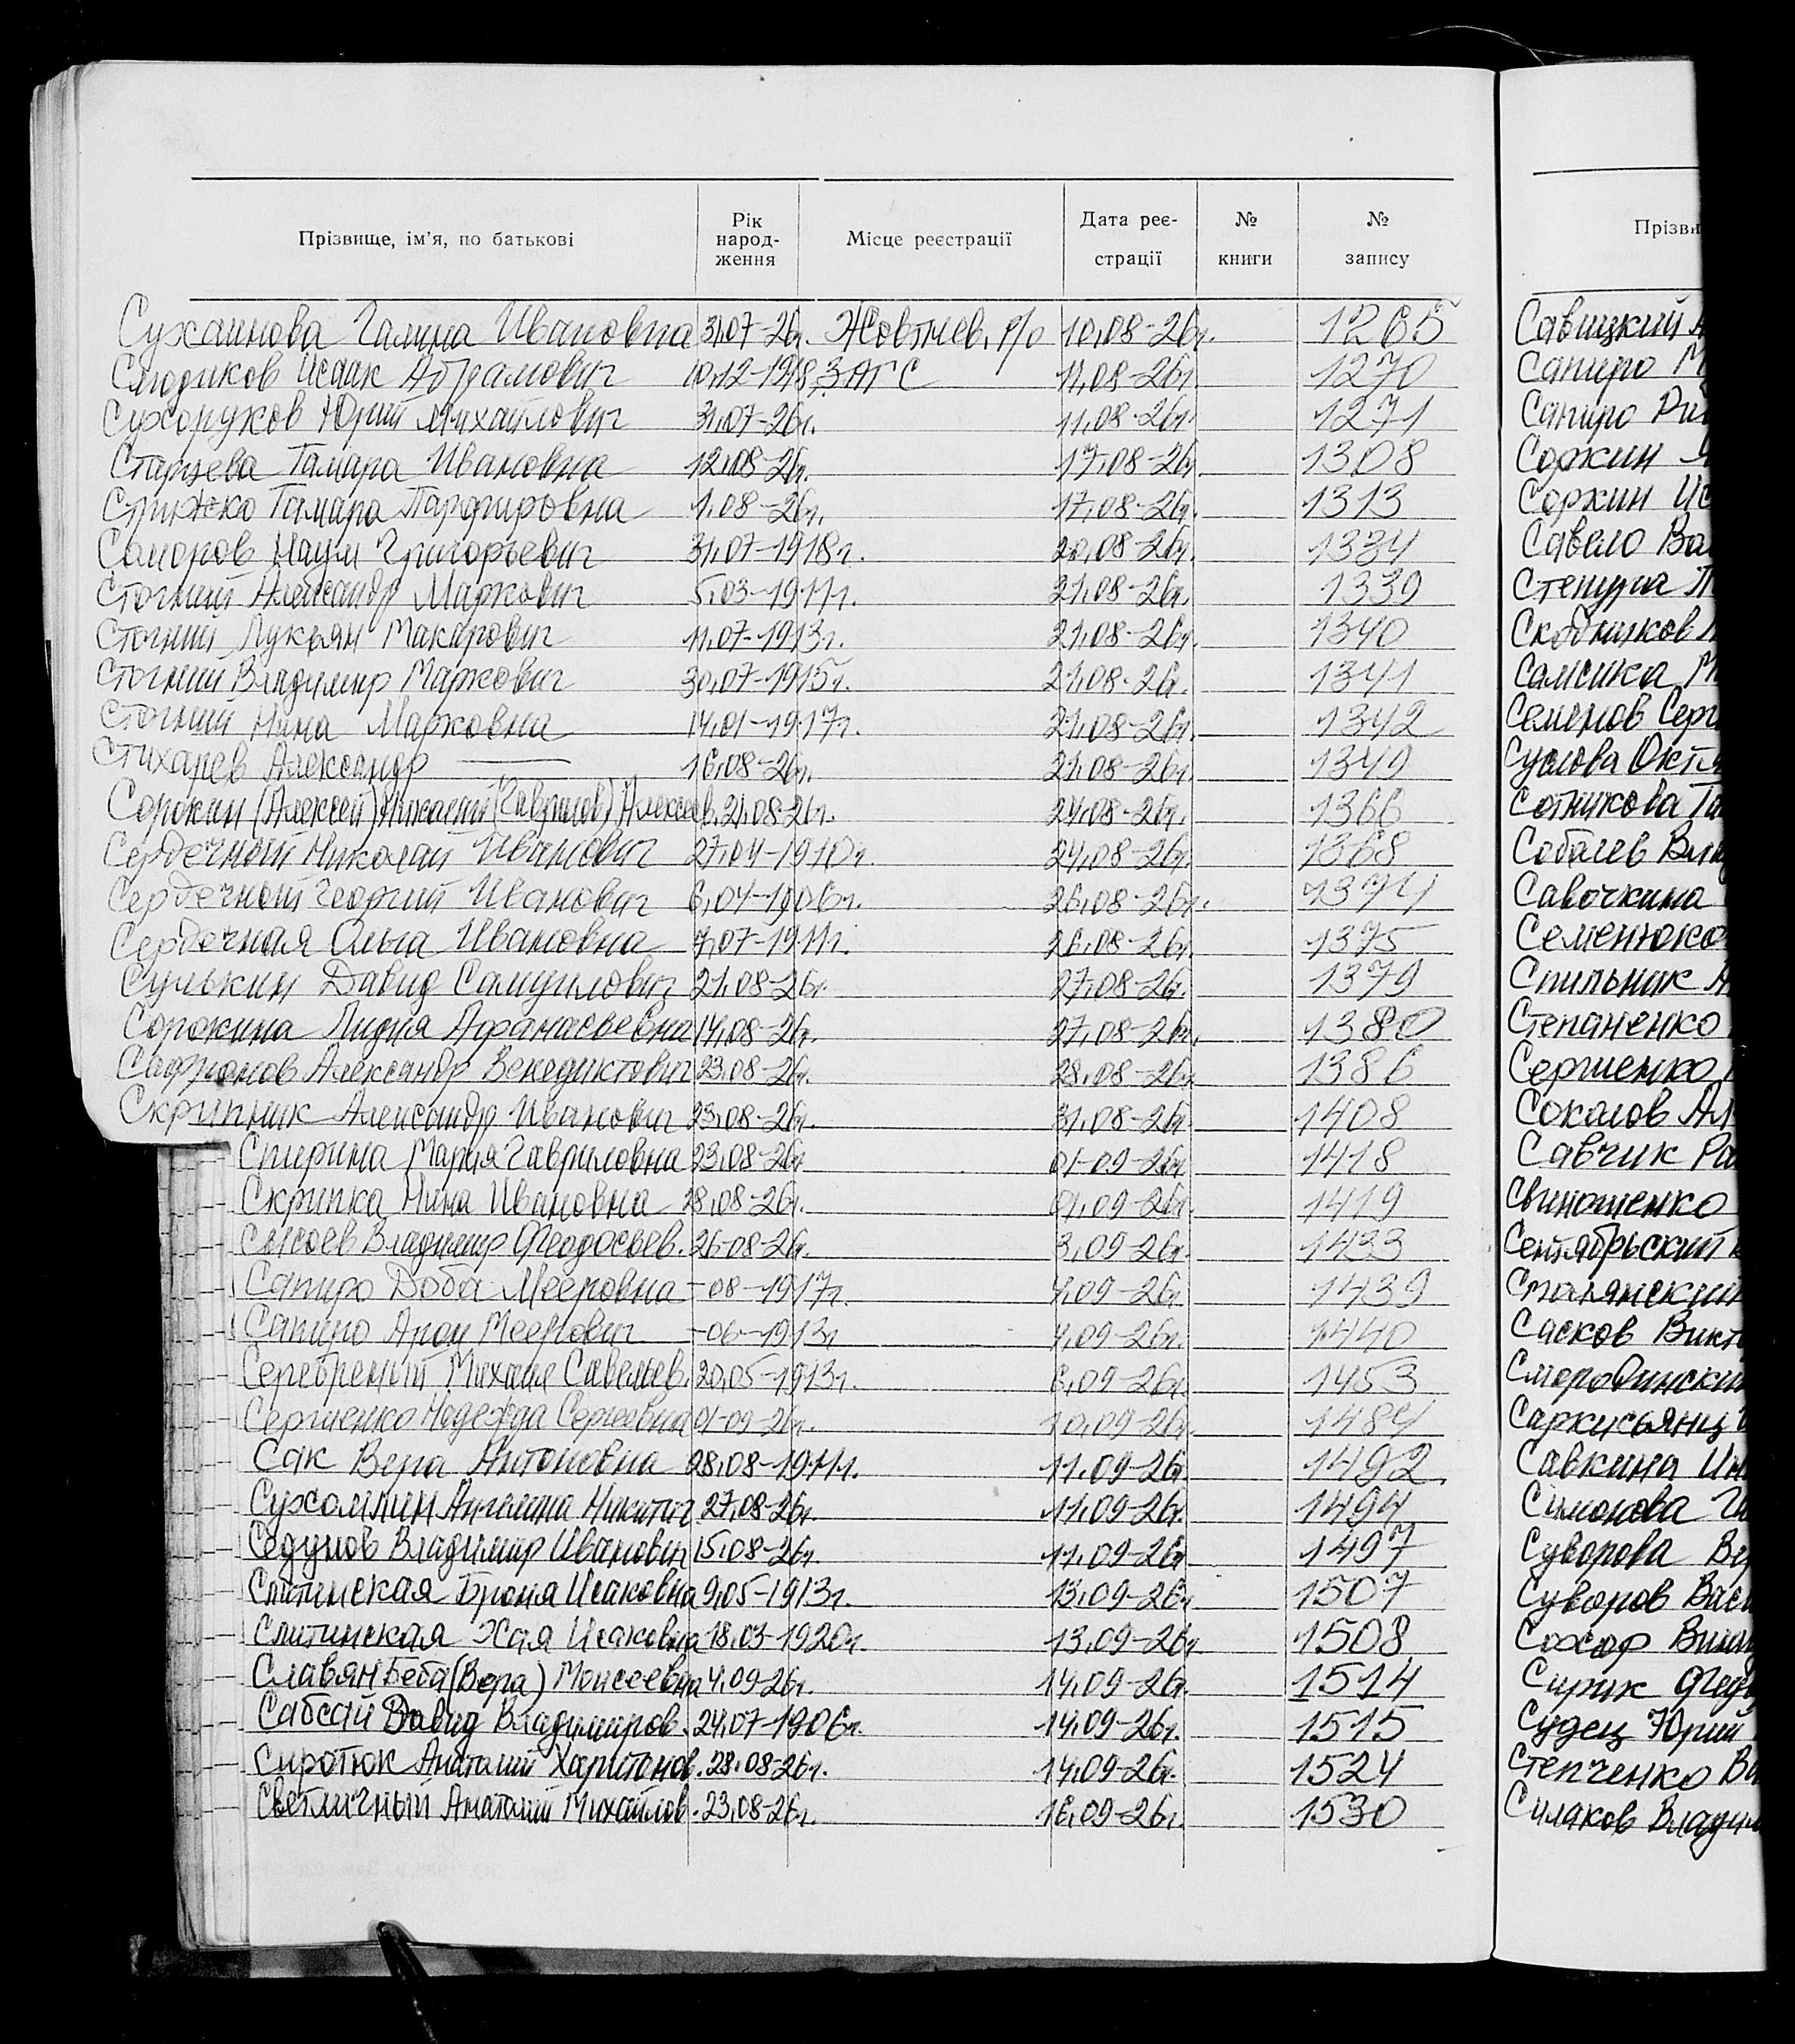 Прізвище, ім'я, по батькові Рік народ- ження Місце реєстрації Дата реє- страції № книги № запису
Суханнова Галина Ивановна 31,07-26г. Жовтнев. р/о 10,08-26г. 1265
Смодиков Исаак Абрамович 10,12-1918, ЗАГС 11,08-26г. 1270
Сухоруков Юрий Михайлович 31,07-26г. 11,08-26г. 1271
Старцева Тамара Ивановна 12,08-26г. 17,08-26г. 1308
Стрижко Тамара Парфировна 1,08-26г. 17,08-26г. 1313
Саморов Наум Григорьевич 31,07-1918г. 20,08-26г. 1334
Стогний Александр Маркович 5,03-1911г. 21,08-26г. 1339
Стогний Лукьян Макарович 11,07-1913г. 21,08-26г. 1340
Стогний Владимир Маркович 30,07-1915г. 21,08-26г. 1341
Стогний Нина Марковна 14,01-1917г. 21,08-26г. 1342
Стихарев Александр — 16,08-26г. 21,08-26г. 1349
Сорокин (Алексей) Николай (Гаврилов) Алексеев. 21,08-26г. 24,08-26г. 1366
Сердечный Николай Иванович 27,04-1910г. 24,08-26г. 1368
Сердечный Георгий Иванович 6,04-1906г. 26,08-26г. 1374
Сердечная Ольга Ивановна 7,07-1911г. 26,08-26г. 1375
Сулькин Давид Самуилович 21,08-26г. 27,08-26г. 1379
Сорокина Лидия Афанасьевна 14,08-26г. 27,08-26г. 1380
Сафронов Александр Венедиктович 23,08-26г. 28,08-26г. 1386
Скрипник Александр Иванович 23,08-26г. 31,08-26г. 1408
Спирина Мария Гавриловна 23,08-26г. 01-09-26г. 1418
Скрипка Нина Ивановна 28,08-26г. 01,09-26г. 1419
Сысоев Владимир Феодосьев. 26-08-26г. 3,09-26г. 1433
Сапиро Доба Мееровна -08-1917г. 4,09-26г. 1439
Сапиро Арон Меерович -06-1913г. 4,09-26г. 1440
Серебреный Михаил Савельев. 20,05-1913г. 6,09-26г. 1453
Сергиенко Надежда Сергеевна 01-09-26г. 10,09-26г. 1484
Сак Вера Антоновна 28,08-1911г. 11,09-26г. 1492
Сухомлин Ангелина Никитич 27,08-26г. 11,09-26г. 1494
Седунов Владимир Иванович 15,08-26г. 11,09-26г. 1497
Слитинская Броня Исаковна 9,05-1913г. 13,09-26г. 1507
Слитинская Хая Исаковна 18,03-1920г. 13,09-26г. 1508
Славян Беба (Вера) Моисеевна 4,09-26г. 14,09-26г. 1514
Сабсай Давид Владимиров. 24,07-1906г. 14,09-26г. 1515
Сиротюк Анатолий Харитонов. 28.08-26г. 14,09-26г. 1524
Светличный Анатолий Михайлов. 23,08-26г. 16,09-26г. 1530
Прізви
Савицкий
Сапиро М
Сапиро
Соркин
Соркин Ис
Савело Ва
Скобников
Семенов Серг
Суслова Октя
Сотникова Та
Собачев Вла
Савочкина
Семенюко
Спильник
Степаненко
Сергиенко
Соколов Ал
Савчик Ра
Свиношенко
Сентябрьский
Смолянский
Сасков Викт
Смородински
Саркисьянц
Савкина Ин
Симонова
Суворова Ве
Суворов Васи
Сирик Феду
Судец Юрий
Степченко Ва
Силаков Владим